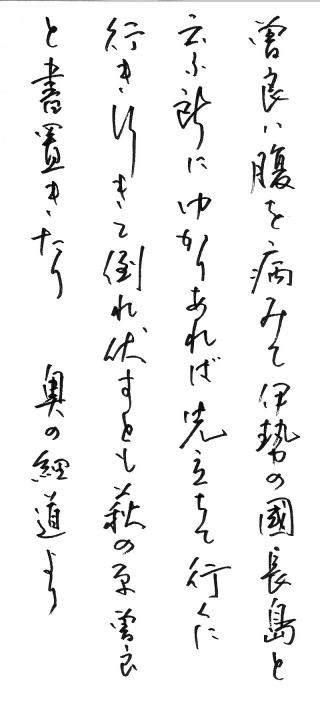 曽良は腹を病みて伊勢の國長島と
云ふ所にゆかりあれば先立ちて行くに
行き行きて倒れ伏すとも萩の原 曽良
と書置きたり 奥の細道より